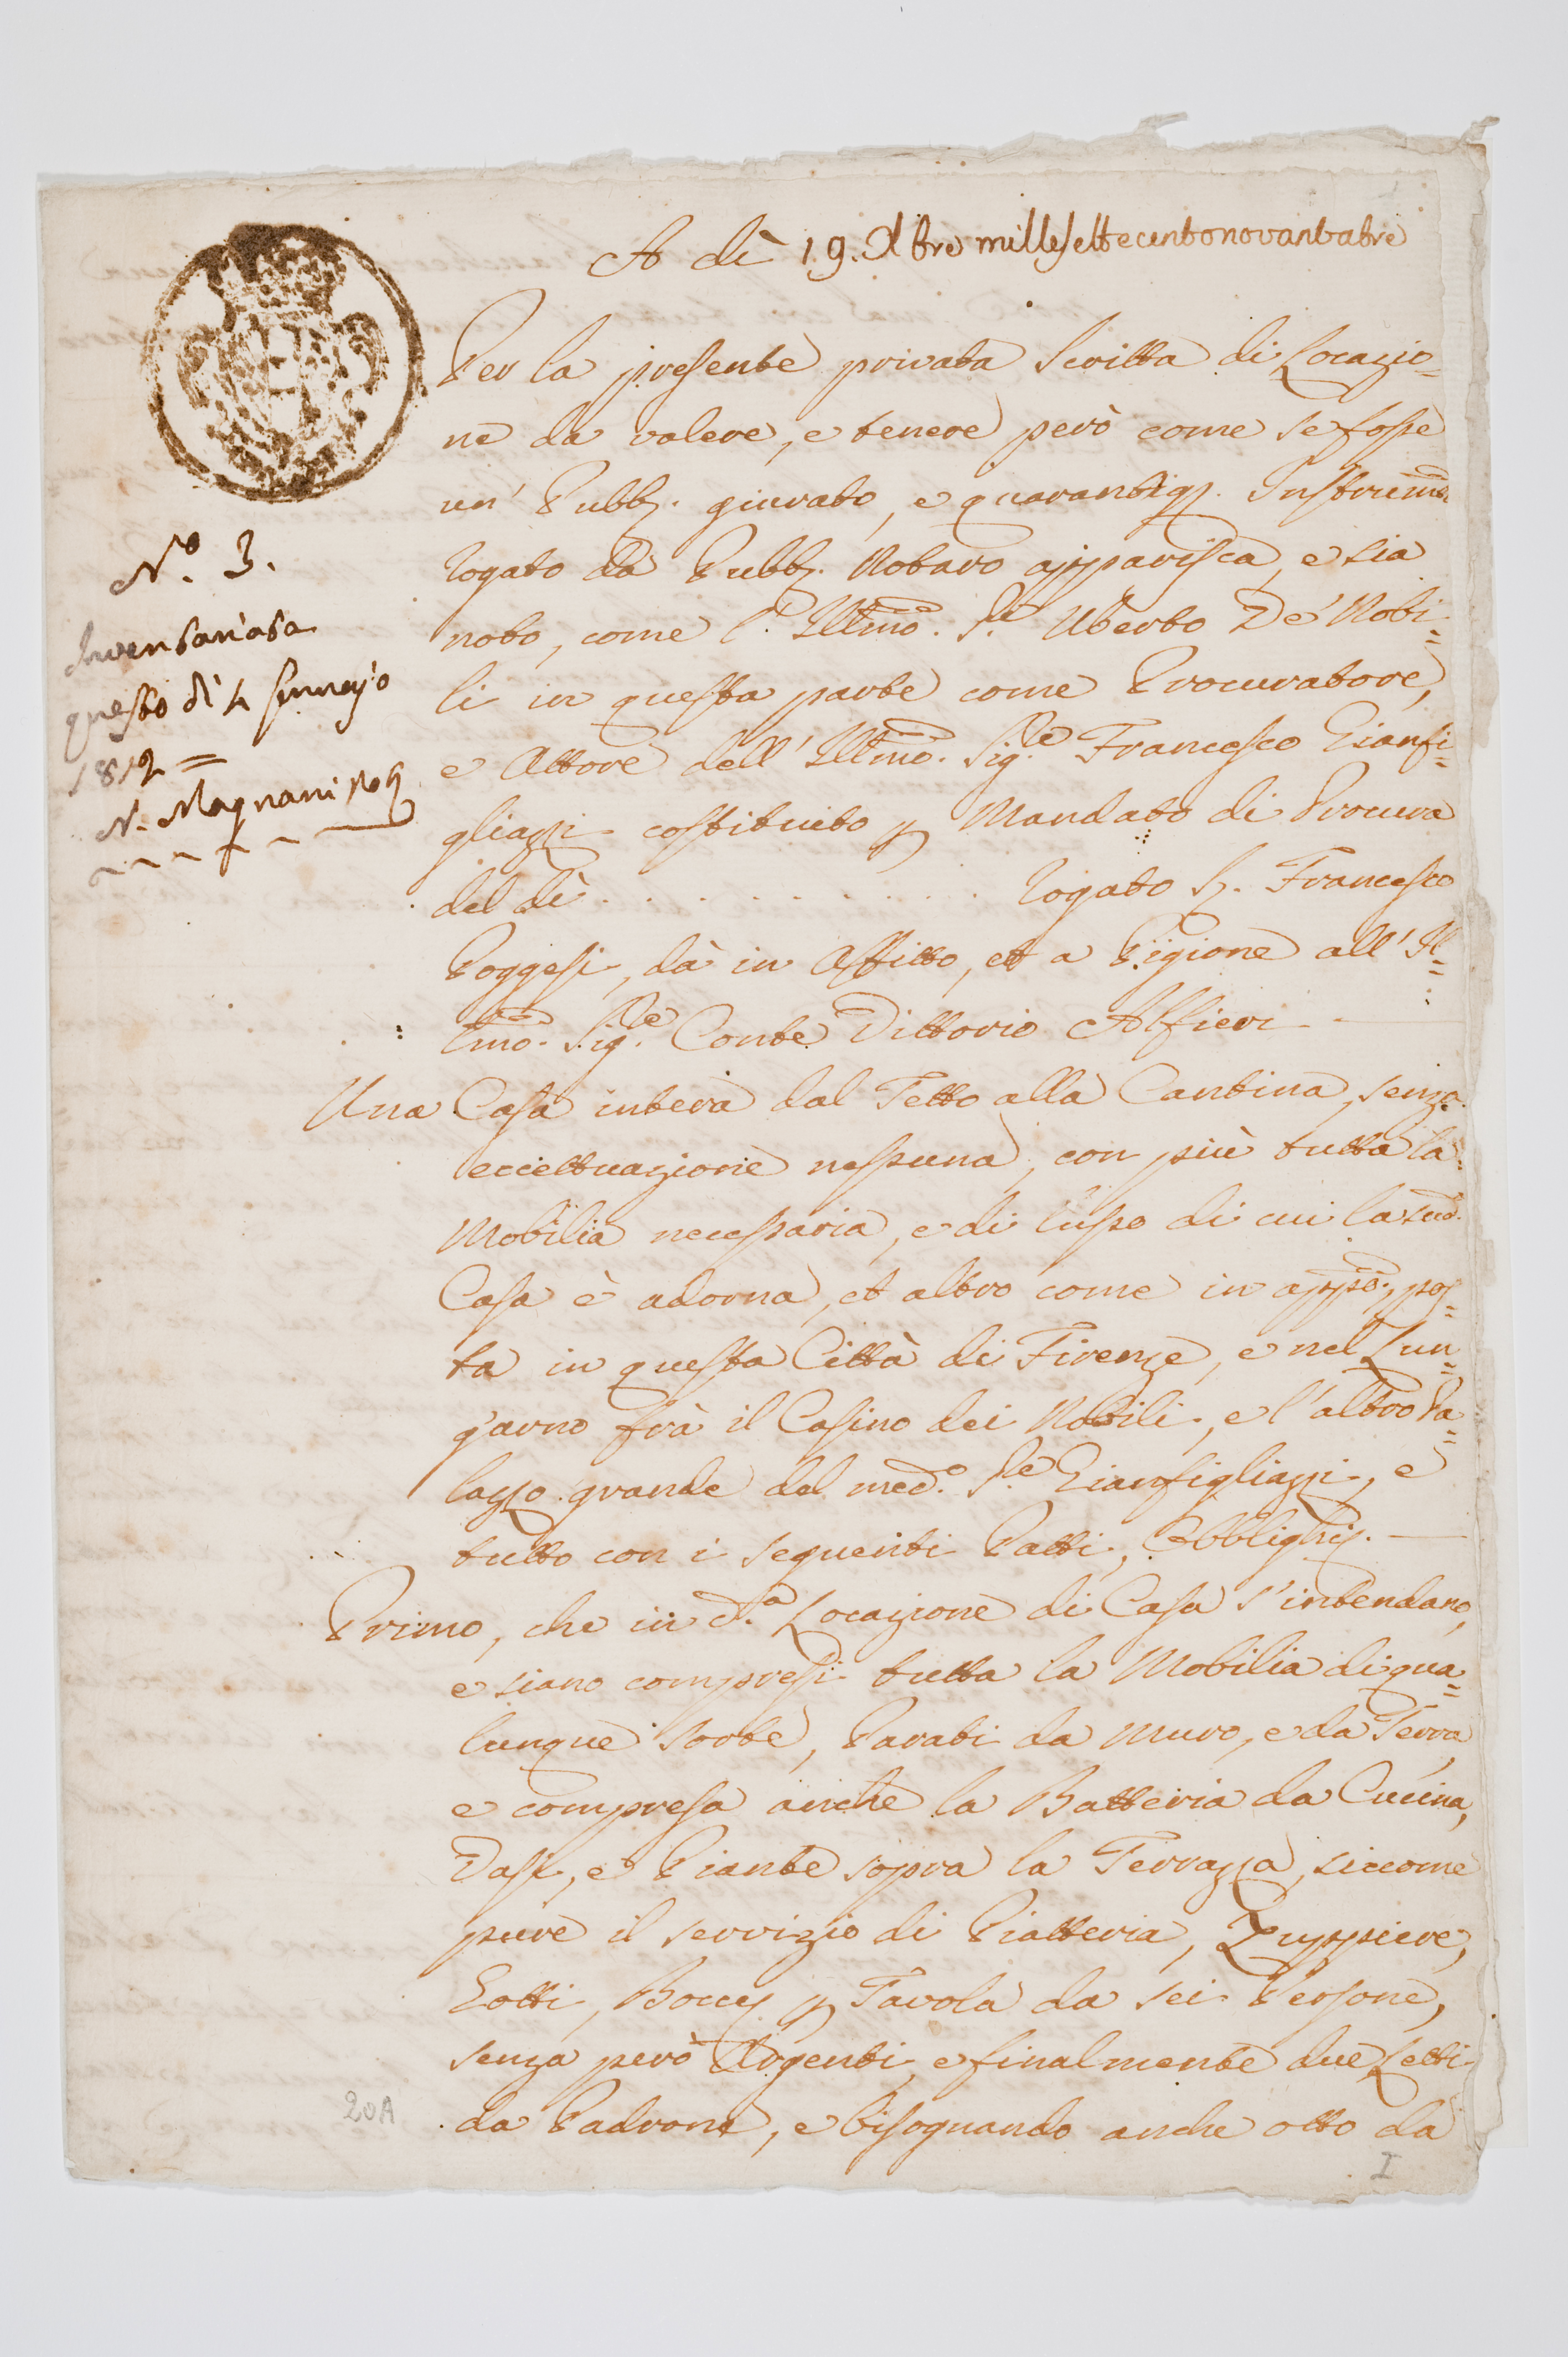 A dì 19. Xbre millesettecentonovantatre
Per la presente privata Scritta di Locazio=
ne da valere, e tenere però come se fosse
un' Pubb. giurato, e guarantig. Instrumto
rogato da Pubb. Notaro apparisca, e sia
noto, come l' Illmo. Sre. Uberto De' Nobi=
li in questa parte come Procuratore,
e Attore dell' Illmo. Sigre. Francesco Gianfi=
gliazzi costituito p Mandato di Procura
del dì . . . . . . . . . rogato S. Francesco
Poggesi, dà in Affitto, et a Pigione all' Il=
lmo. Sigre. Conte Vittorio Alfieri
Una Casa intera dal Tetto alla Cantina, senza
eccettuazione nessuna, con più tutta la
Mobilia necessaria, e di lusso di cui la sud.
Casa è adorna, et altro come in appo., pos=
ta in questa Città di Firenze, e nel Lun=
g'arno frà il Casino dei Nobili, e l'altro Pa=
lazzo grande del med.o Sre. Gianfigliazzi, e
tutto con i seguenti Patti, Obblighi.
Primo, che in d.a Locazione di Casa s'intendano,
e siano compresi tutta la Mobilia di qua=
lunque sorte, Parati da Muro, e da Terra
e compresa anche la Batteria da Cucina,
Vasi, e Piante sopra la Terrazza, siccome
pure il servizio di Piatteria, Zuppiere,
Gotti, Bocce p Tavola da sei Persone,
senza però Argenti, e finalmente due Letti
da Padrone, e bisognando anche otto da
No. 3.
Inventariata
questo dì 4 Gennajo
1812 =
N. Magnani
20A
I